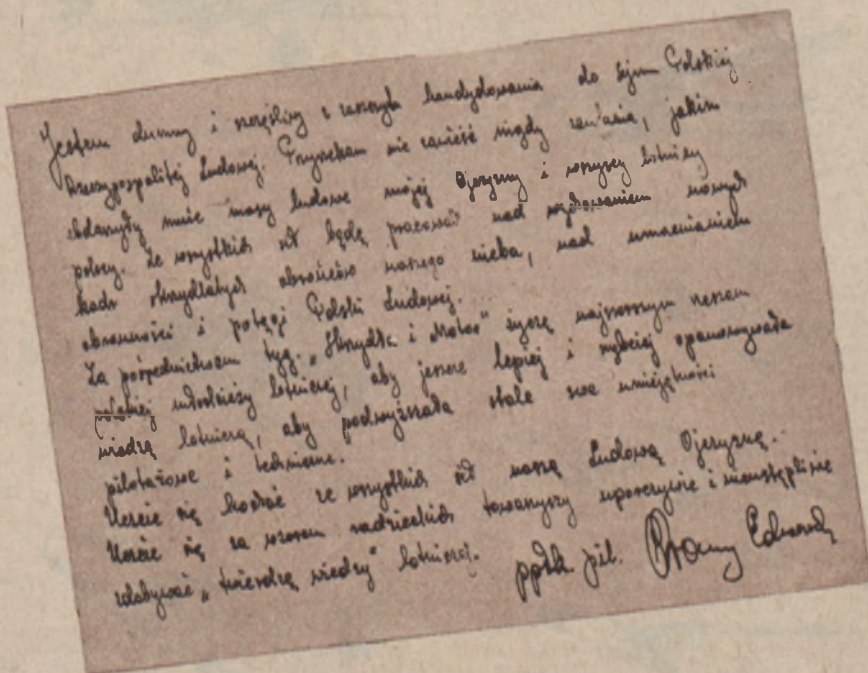 Jestem dumny i szczęśliwy z zaszczytu kandydowania do Sejmu Polskiej
Rzeczypospolitej Ludowej. Przyrzekam nie zawieść nigdy zaufania, jakim
obdarzyły mnie masy ludowe mojej Ojczyzny i wszyscy lotnicy
polscy. Ze wszystkich sił będę pracować nad wychowaniem nowych
kadr skrzydlatych obrońców naszego nieba, nad umacnianiem
obronności i potęgi Polski Ludowej.
Za pośrednictwem tyg. „Skrzydła i Motor” życzę
młodzieży lotniczej, aby jeszcze lepiej i szybciej opanowywała
wiedzę lotniczą, aby podwyższała stale swe umiejętności
pilotażowe i techniczne.
Uczcie się kochać ze wszystkich sił naszą Ludową Ojczyznę.
Uczcie się za wzorem radzieckich towarzyszy uporczywie i nieustępliwie
zdobywać „twierdzę wiedzy” lotniczej. ppłk pil. Edward